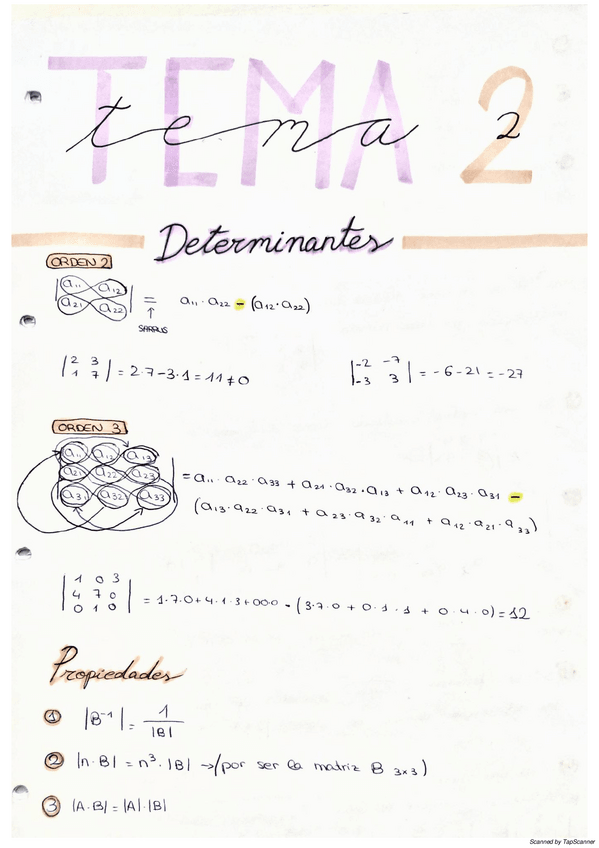 TEMA 2
tema 2
Determinantes
ORDEN 2
|a₁₁ a₁₂|
|a₂₁ a₂₂| = a₁₁·a₂₂ - (a₁₂·a₂₂)
SARRUS
|2 3|
|1 7| = 2·7-3·1 = 11 ≠ 0
|-2 -7|
|-3 3| = -6-21 = -27
ORDEN 3
|a₁₁ a₁₂ a₁₃|
|a₂₁ a₂₂ a₂₃| = a₁₁·a₂₂·a₃₃ + a₂₁·a₃₂·a₁₃ + a₁₂·a₂₃·a₃₁ -
|a₃₁ a₃₂ a₃₃| (a₁₃·a₂₂·a₃₁ + a₂₃·a₃₂·a₁₁ + a₁₂·a₂₁·a₃₃)
|1 0 3|
|4 7 0| = 1·7·0+4·1·3+0·0·0 - (3·7·0 + 0·1·1 + 0·4·0) = 12
|0 1 0|
Propiedades
① |B⁻¹| = 1/|B|
② |n·B| = n³·|B| → (por ser la matriz B 3x3)
③ |A·B| = |A|·|B|
Scanned by TapScanner